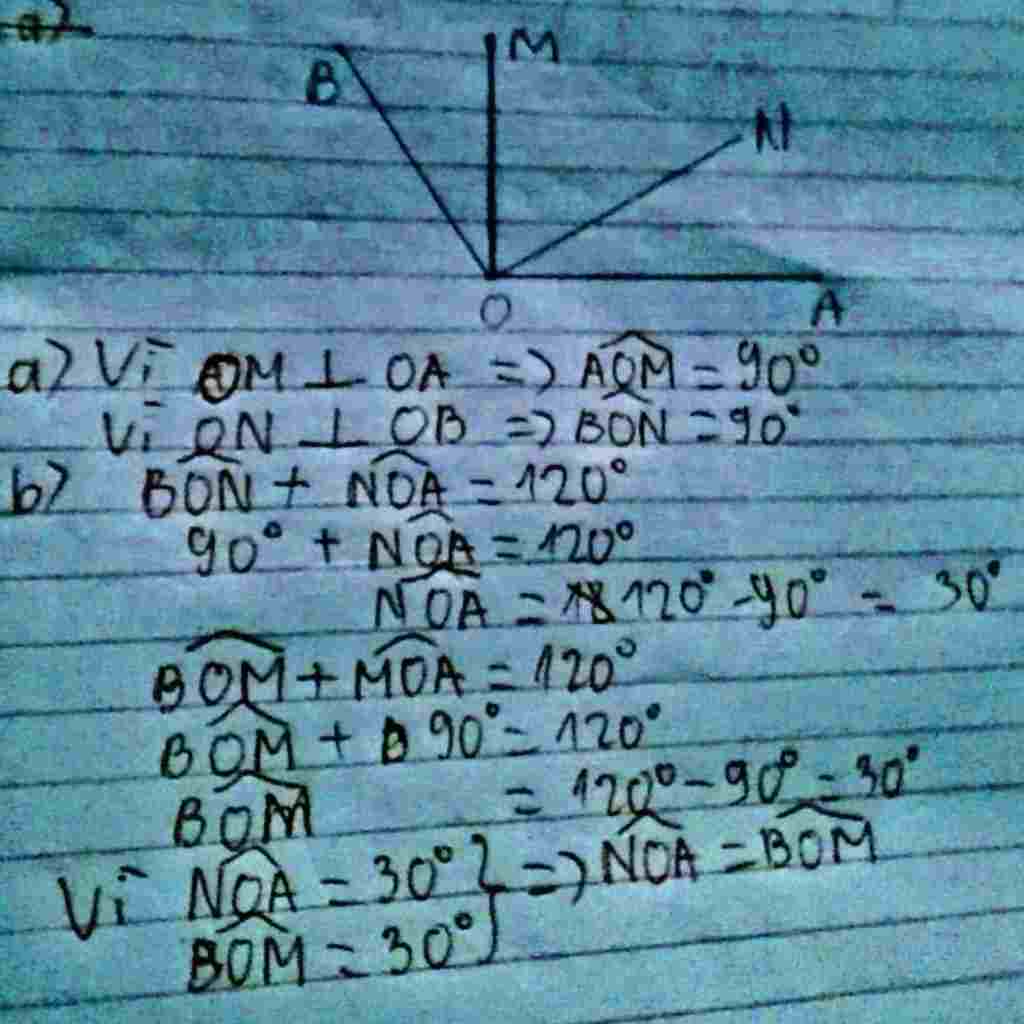 a)
B
M
N
O
A
a) Vì OM ⊥ OA => AOM = 90°
Vì ON ⊥ OB => BON = 90°
b) BON + NOA = 120°
90° + NOA = 120°
NOA = 120° - 90° = 30°
BOM + MOA = 120°
BOM + 90° = 120°
BOM = 120° - 90° = 30°
Vì NOA = 30° } => NOA = BOM
BOM = 30°